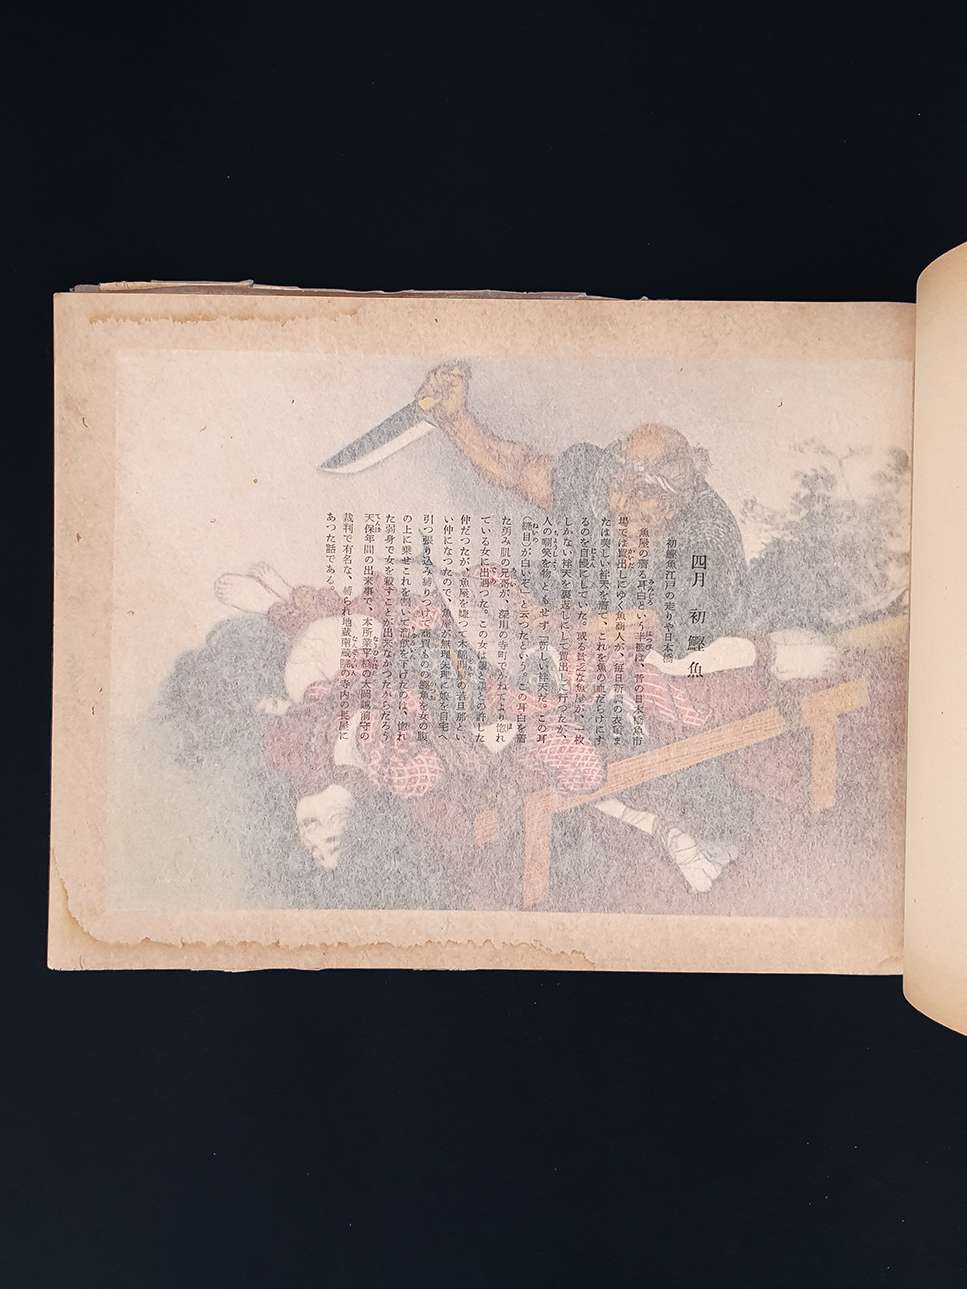 四月　初鰹魚
初鰹魚江戸の走りや日本橋
魚屋の着る耳白という半纏は、昔の日本橋魚市
場では買出しにゆく魚商人が、毎日新調の衣裳ま
たは美しい袢天を着て、これを魚の血だらけにす
るのを自慢にしていた。或る貧乏な魚屋が、一枚
しかない袢天を裏返しにして買出しに行つたが、
人の嘲笑を物ともせず「新しい袢天だ。この耳
（縫目）が白いぞ」と云つたという。この耳白を着
た勇み肌の兄哥が、深川の寺町でかねてより惚れ
ている女に出遇つた。この女は親と親との許した
仲だつたが、魚屋を嫌つて木綿問屋の若旦那とい
い仲になつたので、魚屋が無理矢理に娘を自宅へ
引つ張り込み縛りつけて商買ものの鰹魚を女の腹
の上に乗せこれを割いて溜飲を下げたのは、惚れ
た弱身で女を殺すことが出来なかつたからだろう
天保年間の出来事で、本所業平橋の大岡越前守の
裁判で有名な、縛られ地蔵南蔵院の寺内の長屋に
あつた話である。